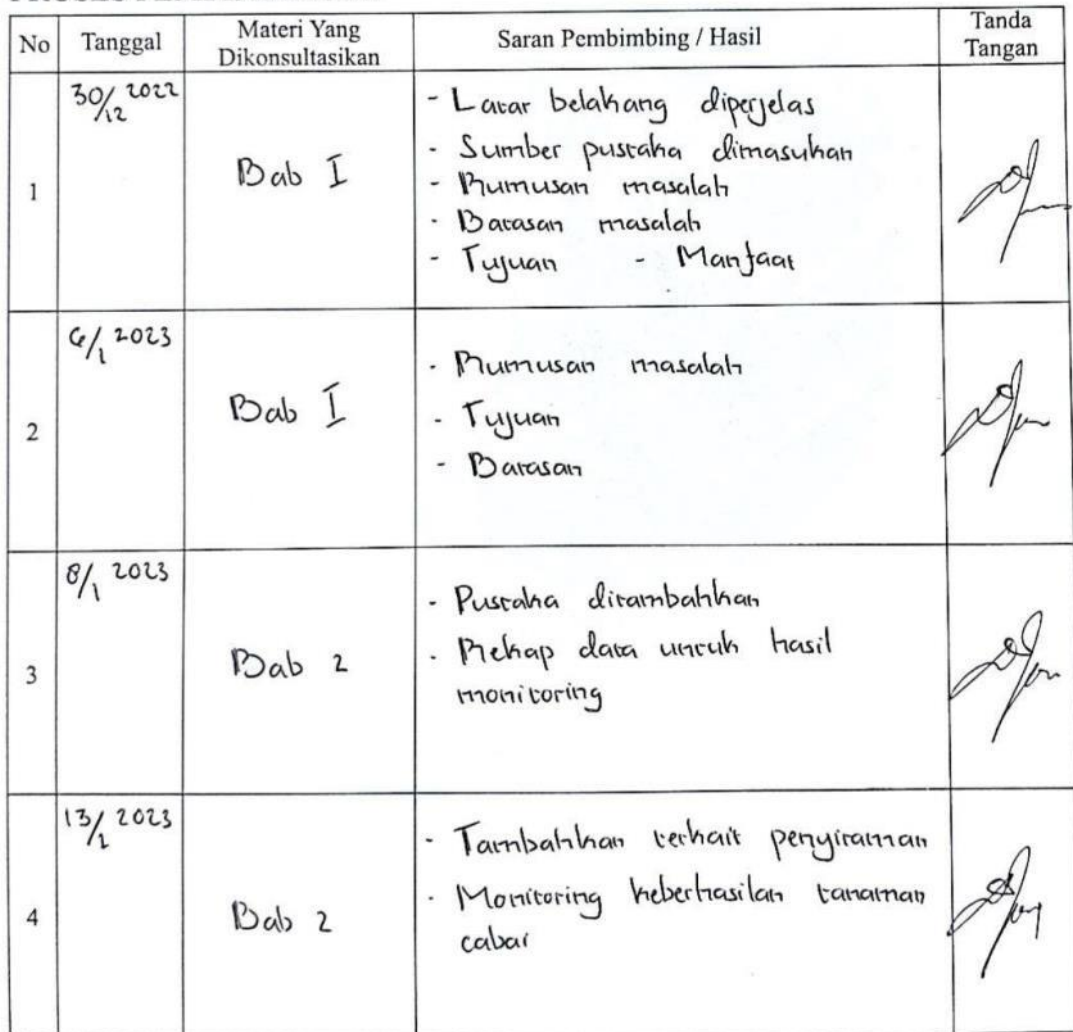 No Tanggal Materi Yang Dikonsultasikan Saran Pembimbing / Hasil Tanda Tangan
1 30/12 2022 Bab I
- Latar belakang diperjelas
- Sumber pustaka dimasukan
- Rumusan masalah
- Batasan masalah
- Tujuan - Manfaat
2 6/1 2023 Bab I
- Rumusan masalah
- Tujuan
- Batasan
3 8/1 2023 Bab 2
- Pustaka ditambahkan
- Rekap data untuk hasil
monitoring
4 13/2 2023 Bab 2
- Tambahkan terkait penyiraman
- Monitoring keberhasilan tanaman
cabai